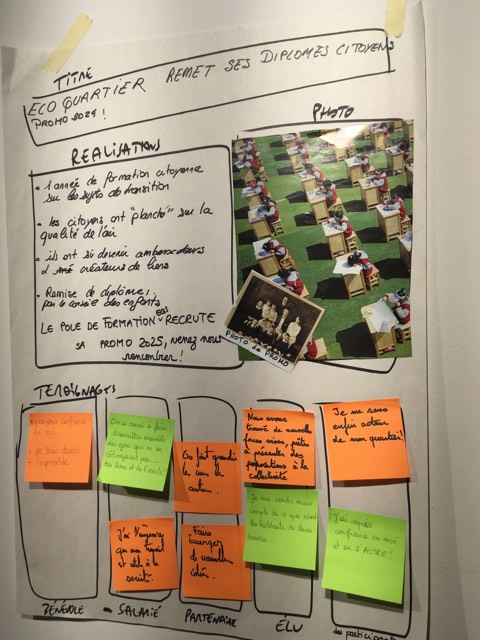 TITRE
ECO QUARTIER REMET SES DIPLOMES CITOYENS
PROMO 2024 !
PHOTO
REALISATIONS
• 1 année de formation citoyenne
sur les sujets de transition
• les citoyens ont "planché" sur la
qualité de l'air
• ils ont su devenir ambassadeurs
d créateurs de liens
• Remise de diplômes,
par le conseil des enfants
LE POLE DE FORMATION RECRUTE
SA PROMO 2025, venez nous
rencontrer !
PHOTO de PROMO
TEMOIGNAGES
confiance
en moi
responsable
On a réussi à faire
travailler ensemble
des gens qui ne se
J'ai
que mon travail
est utile à la
société.
On fait grandir
le
en
Faire
Emerger
de nouvelles
idées.
Nous avons
trouvé de nouvelles
forces vives, prêtes
à présenter des
propositions à la
collectivité
Je me rends mieux
compte de ce que vivent
les habitants de
Je me sens
enfin acteur
de mon quartier !
J'ai repris
confiance en moi
et en L'AUTRE !
BÉNÉVOLE
SALARIÉ
PARTENAIRE
ÉLU
participants